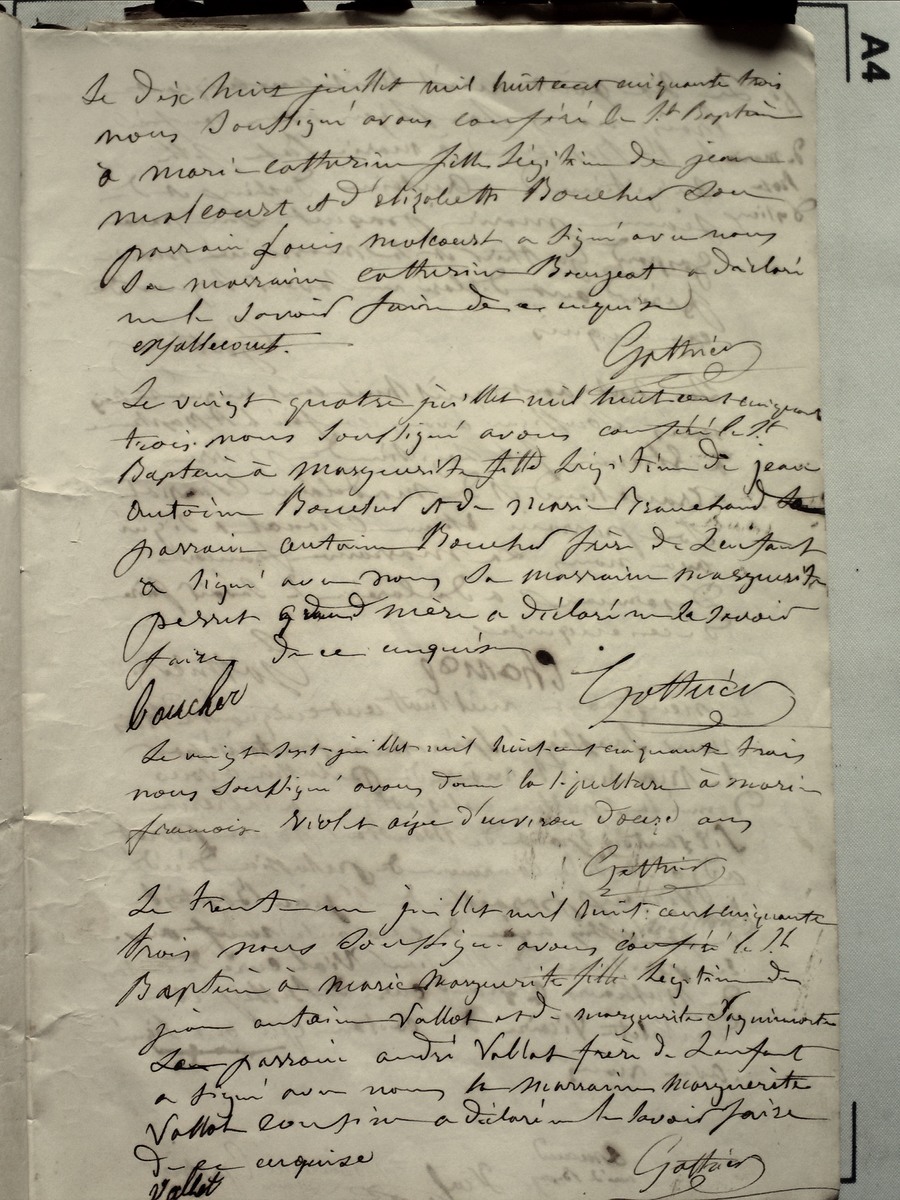 Le dix huit juillet mil huit cent cinquante trois
nous soussigné avons conféré le St Baptêm
à marie catherine fille légitim de jean
malcourt et d'élizabeth Boucher son
parrain Louis malcourt a signé avec nous
Sa marraine catherine Bourgeat a déclaré
ne le savoir faire de ce enquise
Gotthier
Le vingt quatre juillet mil huit cent cinquant
trois nous soussigné avons conféré le St
Baptêm à marguerite fille légitime de jean
antoine Boucher et de marie
parrain antoine Boucher frère de L'enfant
a signé avec nous Sa marraine marguerite
perrit grand mère a déclaré ne le savoir
faire de ce enquise
boucher Gotthier
Le vingt sept juillet mil huit cent cinquante trois
nous soussigné avons donné la sépulture à marie
francoise Violet agée d'environ douze ans
Gotthier
Le trente un juillet mil huit cent cinquante
trois nous soussigné avons conféré le St
Baptêm à marie marguerite fille légitime de
jean antoine Vallot et de marguerite
Son parrain andré Vallot frère de L'enfant
a signé avec nous la marraine marguerite
Vallot cousine a déclaré ne le savoir faire
de ce enquise
Vallot Gotthier
A4